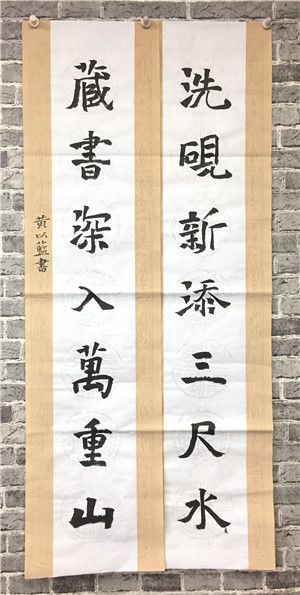 洗硯新添三尺水
藏書深入萬重山
黃以藍書